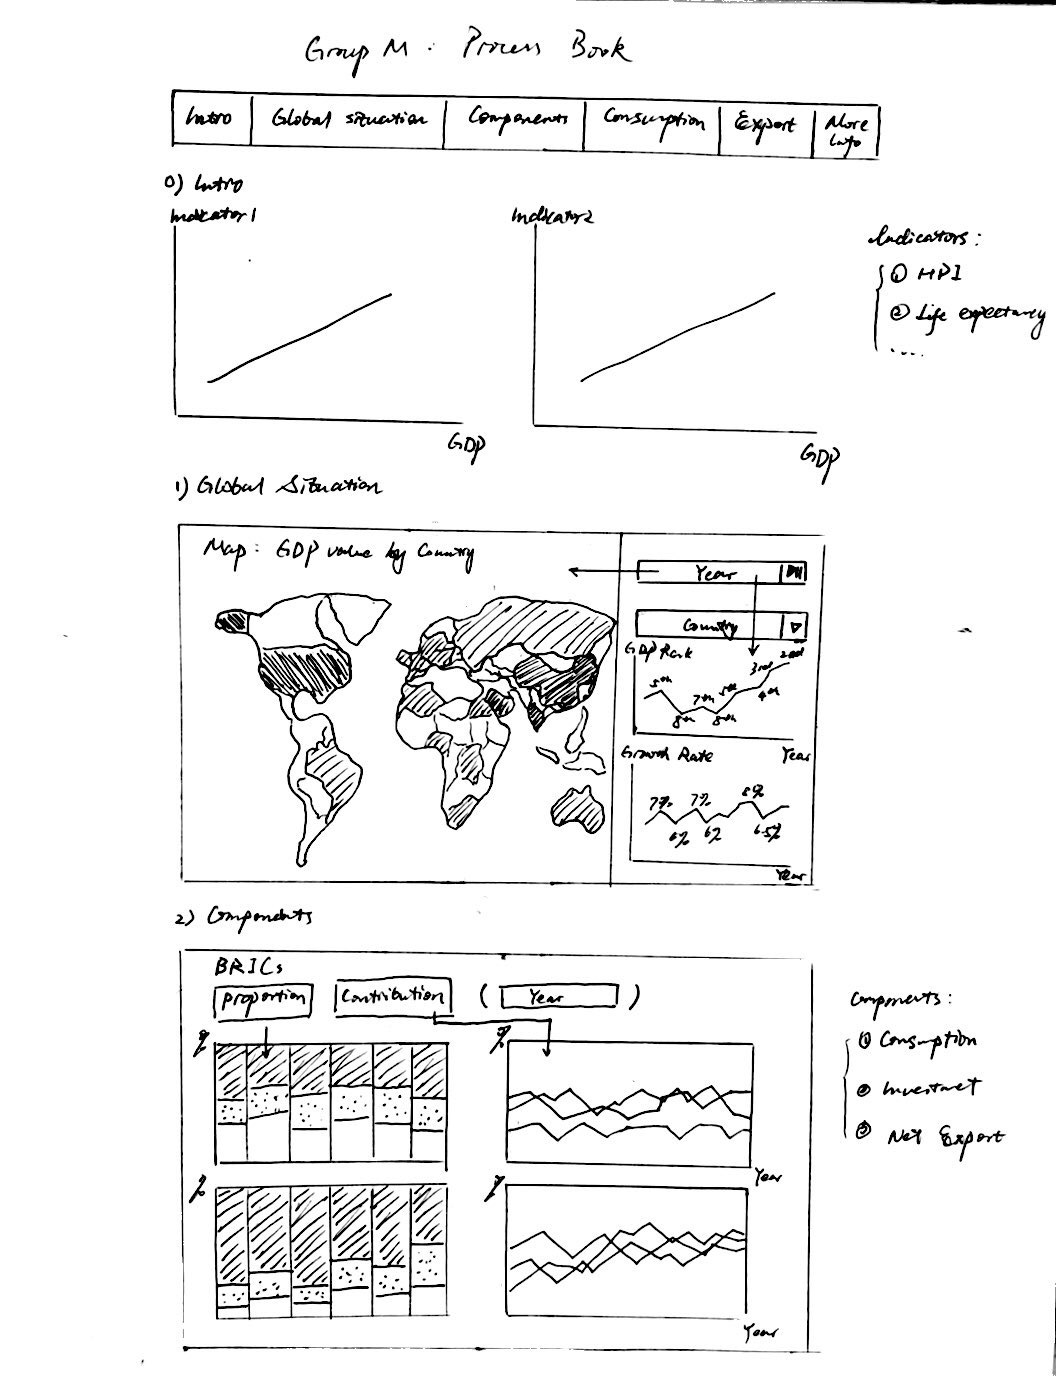 Group M : Process Book
Intro
Global situation
Components
Consumption
Export
More
Info
0) Intro
Indicator1
Indicator2
Indicators:
① HPI
② Life expectancy
....
GDP
GDP
1) Global Situation
Map: GDP value by Country
Year
Country
GDP Rank
5th
8th
7th
8th
5th
3rd
4th
2nd
Year
Growth Rate
7%
6%
7%
6%
8%
6.5%
Year
2) Components
BRICs
Proportion
Contribution
( Year )
%
%
Year
%
%
Year
Components:
① Consumption
② Investment
③ Net Export